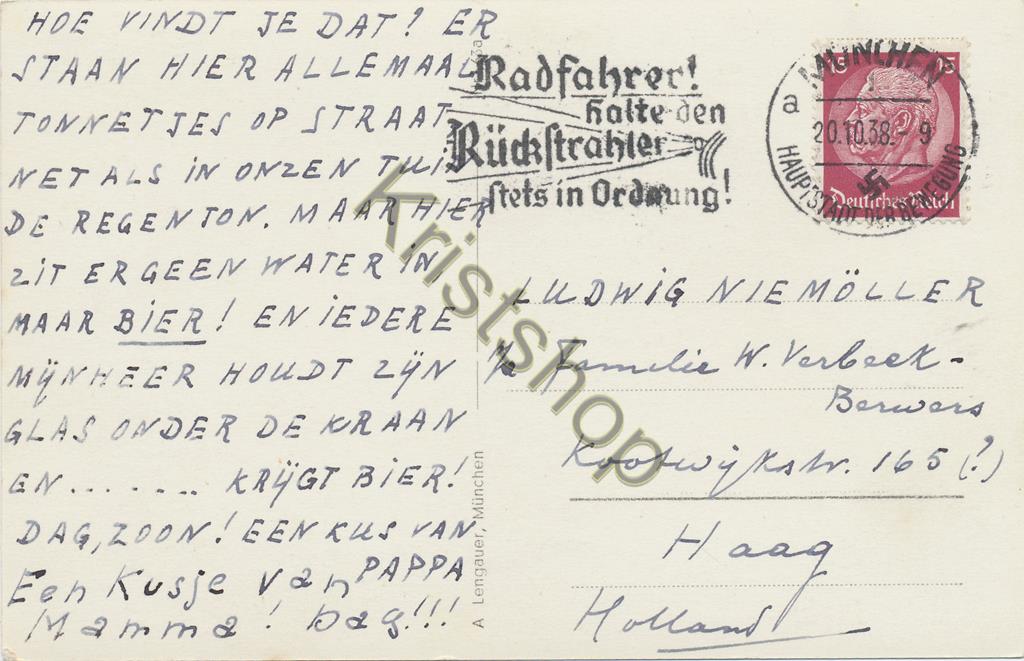 HOE VINDT JE DAT? ER
STAAN HIER ALLEMAAL
TONNETJES OP STRAAT
NET ALS IN ONZEN TUIN
DE REGENTON. MAAR HIER
ZIT ER GEEN WATER IN,
MAAR BIER! EN IEDERE
MIJNHEER HOUDT ZIJN
GLAS ONDER DE KRAAN
EN....... KRIJGT BIER!
DAG, ZOON! EEN KUS VAN
PAPPA
Een Kusje van
Mamma! Dag!!!
A Lengauer, München
Radfahrer!
halte den
Rückstrahler
stets in Ordnung!
MÜNCHEN
1
a
20.10.38.- 9
HAUPTSTADT DER BEWEGUNG
15 15
Deutsches Reich
LUDWIG NIEMÖLLER
p/a Familie W. Verbeek-
Berwers
Kootwijkstr. 165 (?)
Haag
Holland
Kristshop